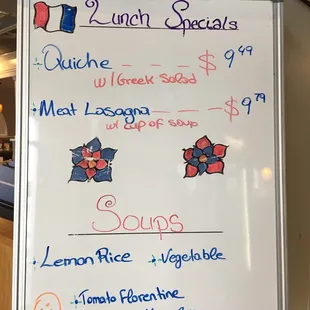 Lunch Specials
Quiche - - - $9.49
w/ Greek Salad
Meat Lasagna - - - $9.79
w/ cup of soup
Soups
Lemon Rice Vegetable
Tomato Florentine